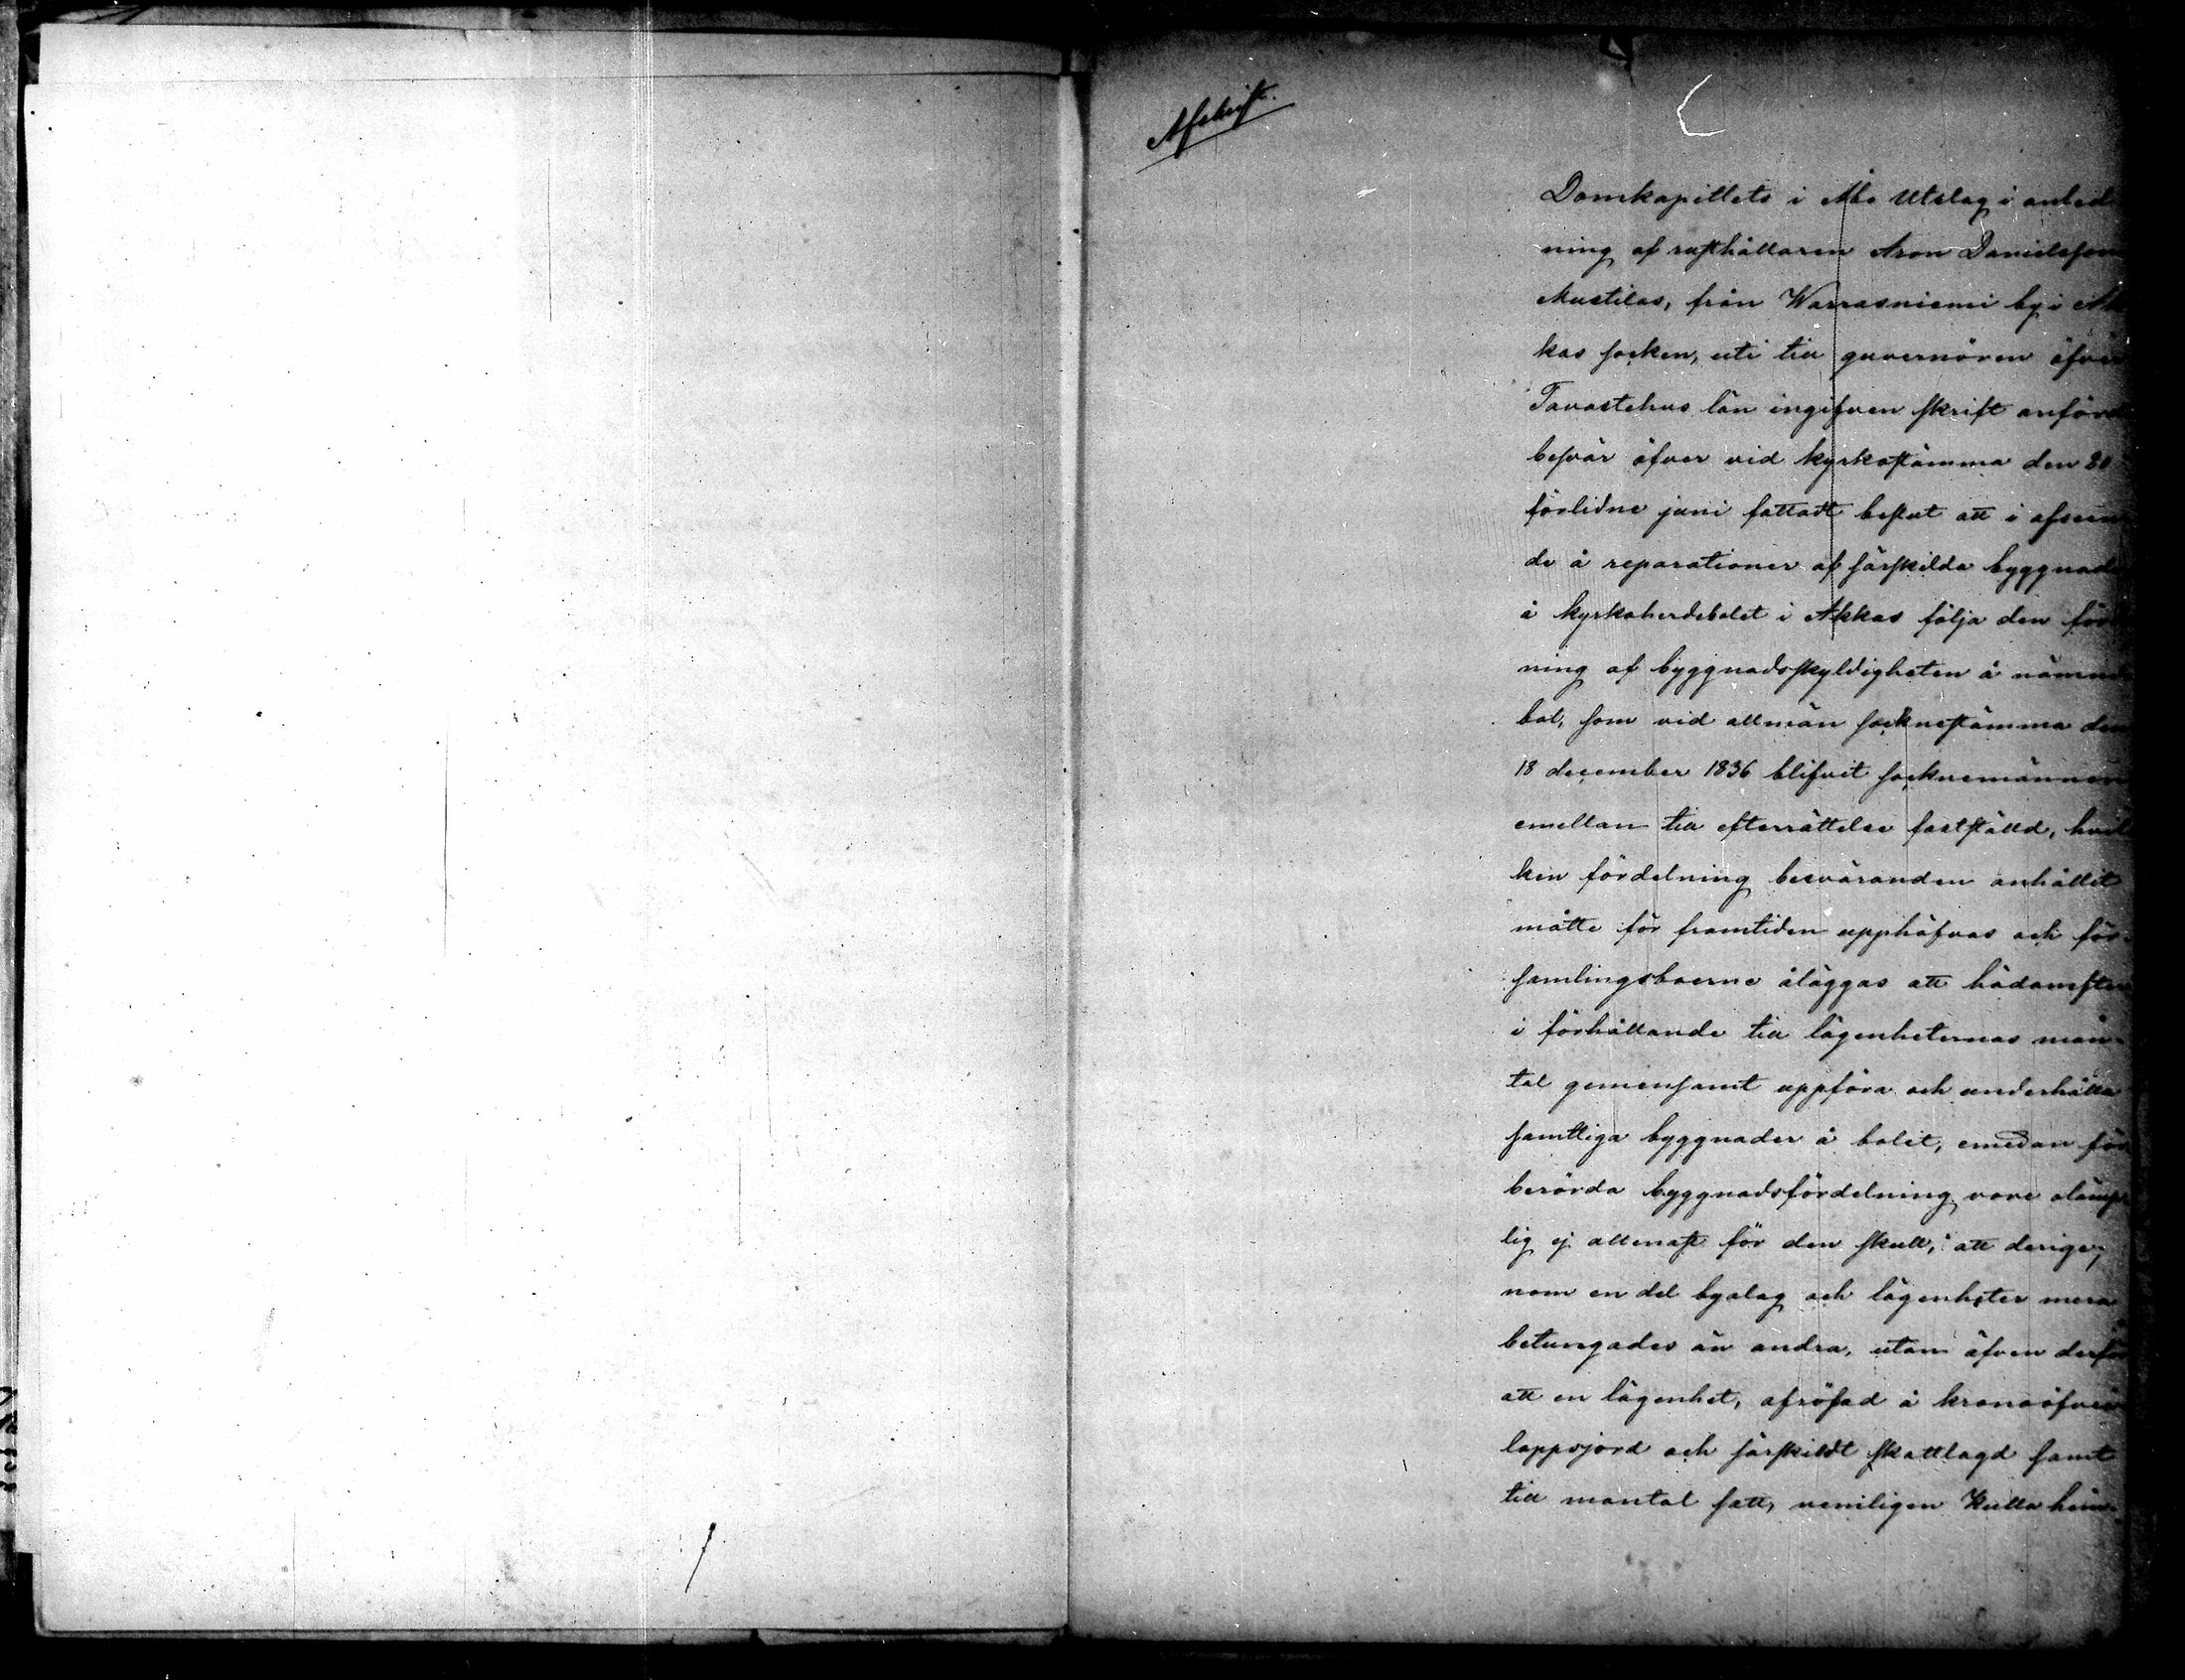 Afskrift.
Domkapitlets i Åbo Utslag i anled
ning af rusthållaren Aron Danielsson
Mustilas, från Warrasniemi by i Ak
kas socken, uti till guvernören öfver
Tavastehus län ingifven skrift anförda
besvär öfver vid kyrkostämma den 20
förlidne juni fattadt beslut att i afseen
de å reparationer af särskilda byggnader
å kyrkoherdebolet i Akkas följa den fördel
ning af byggnadsskyldigheten å nämnde
bol, som vid allmän sockenstämma den
18 december 1836 blifvit socknemännen
emellan till efterrättelse fastställd, hvil
ken fördelning besväranden anhållit
måtte för framtiden upphäfvas och för-
samlingsboerne åläggas att hädanefter
i förhållande till lägenheternas man-
tal gemensamt uppföra och underhålla
samtliga byggnader å bolet, emedan för
berörda byggnadsfördelning vore olämp
lig ej allenast för den skull, att derige-
nom en del byalag och lägenheter mera
betungades än andra, utan äfven derför
att en lägenhet, afröjad å kronoöfver
loppsjord och särskildt skattlagd samt
till mantal satt, nemligen Kulla hem-